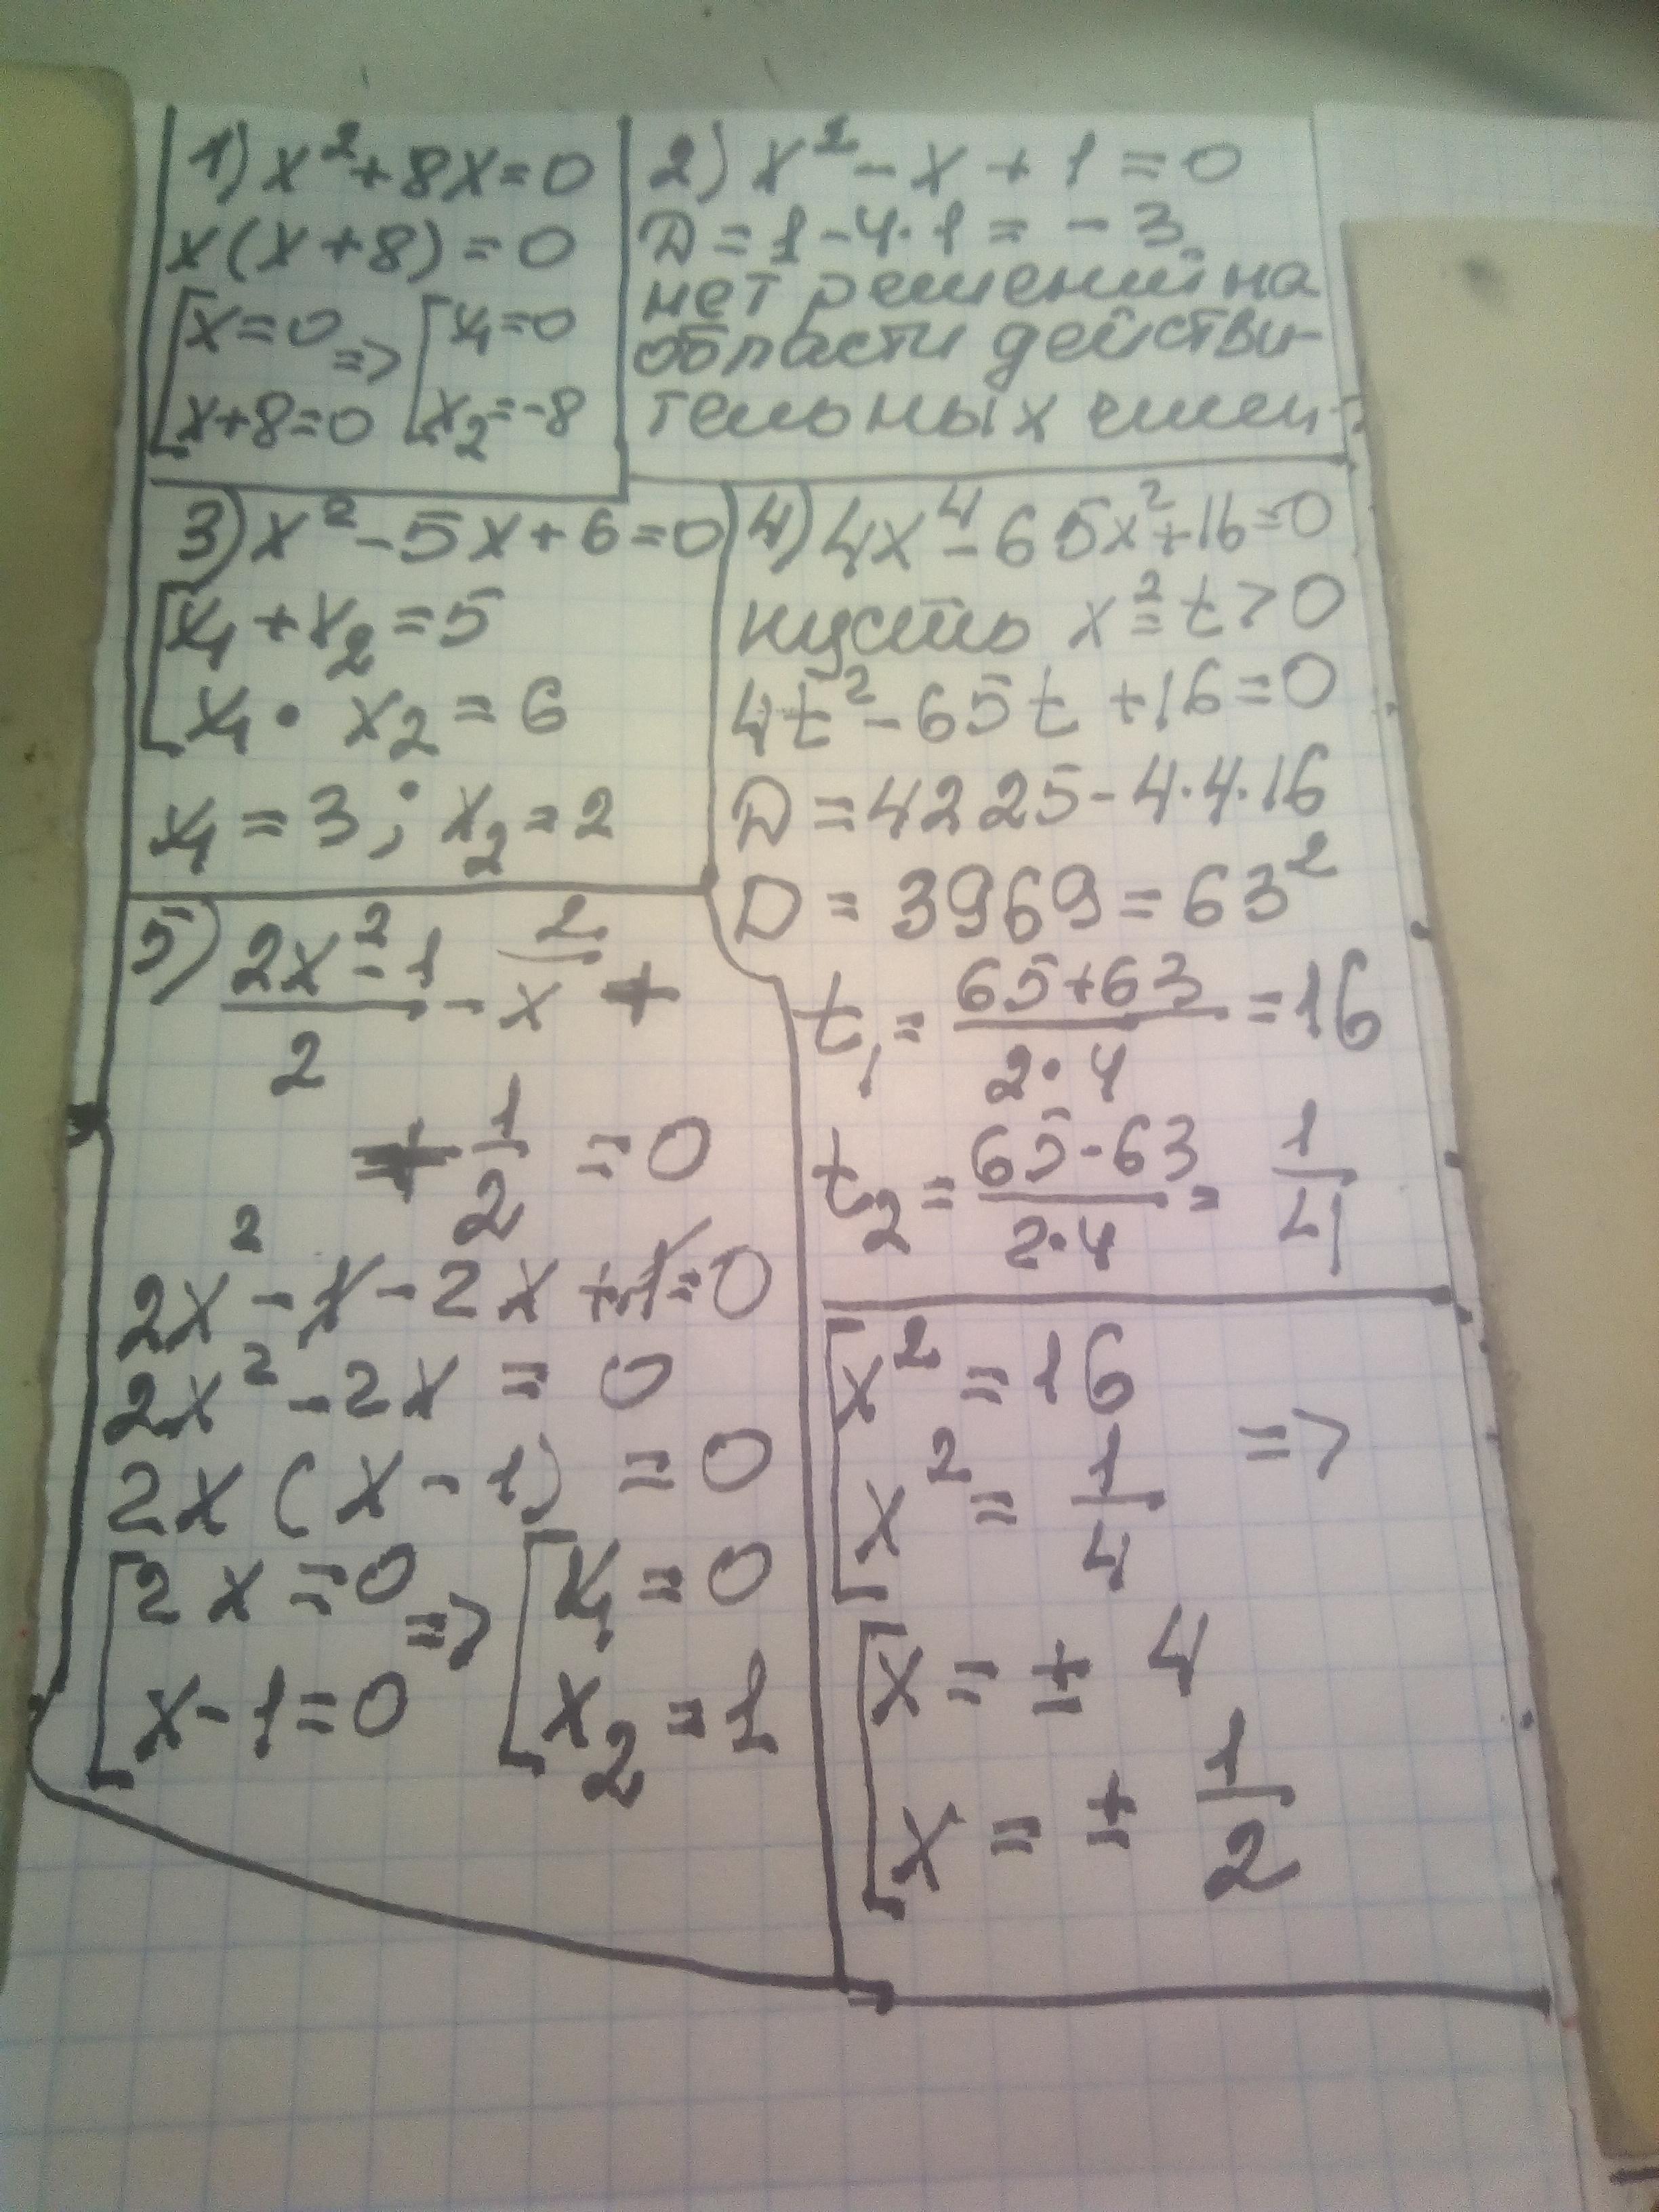 1) x² + 8x = 0
x(x + 8) = 0
[x = 0 => [x₁ = 0
[x + 8 = 0 [x₂ = -8
2) x² - x + 1 = 0
D = 1 - 4·1 = - 3
нет решений на
области действи-
тельных чисел
3) x² - 5x + 6 = 0
[x₁ + x₂ = 5
[x₁ · x₂ = 6
x₁ = 3; x₂ = 2
4) 4x⁴ - 65x² + 16 = 0
пусть x² = t > 0
4t² - 65t + 16 = 0
D = 4225 - 4·4·16
D = 3969 = 63²
t₁ = (65+63)/(2·4) = 16
t₂ = (65-63)/(2·4) = 1/4
[x² = 16
[x² = 1/4 =>
[x = ± 4
[x = ± 1/2
5) (2x² - 1)/2 - x̅² +
+ 1/2 = 0
2x² - 1 - 2x + 1 = 0
2x² - 2x = 0
2x (x - 1) = 0
[2x = 0 => [x₁ = 0
[x - 1 = 0 [x₂ = 1